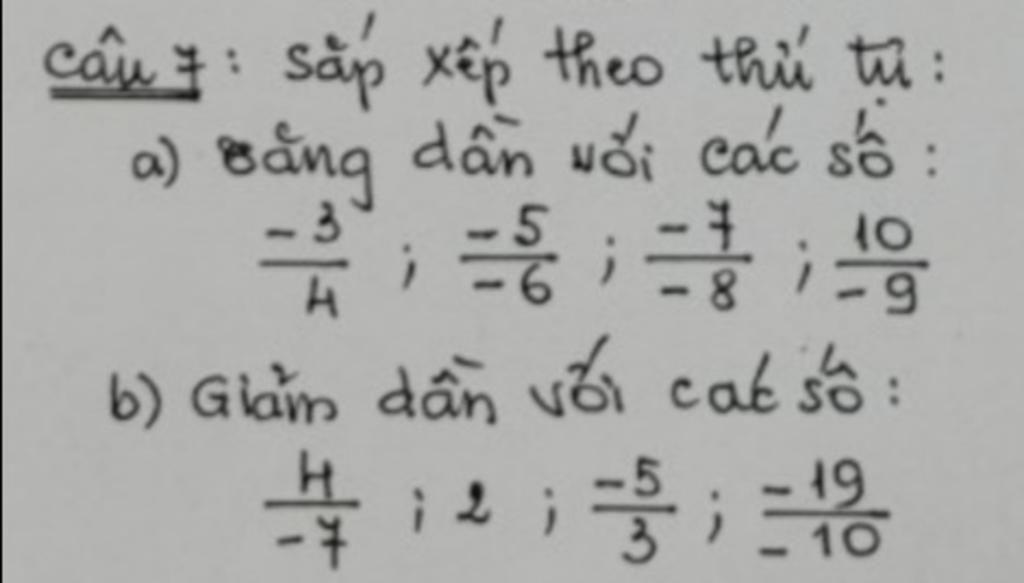 Câu 7: Sắp xếp theo thứ tự:
a) tăng dần với các số:
-3/4 ; -5/-6 ; -7/-8 ; 10/-9
b) Giảm dần với các số:
4/-7 ; 2 ; -5/3 ; -19/-10